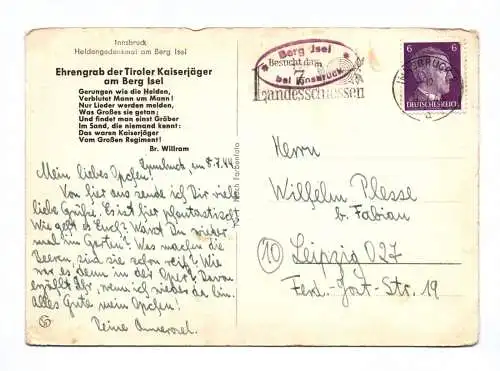 Innsbruck
Heldengedenkmal am Berg Isel
Ehrengrab der Tiroler Kaiserjäger
am Berg Isel
Gerungen wie die Helden,
Verblutet Mann um Mann!
Nur Lieder werden melden,
Was Großes sie getan;
Und findet man einst Gräber
Im Sand, die niemand kennt:
Das waren Kaiserjäger
Vom Großen Regiment!
Br. Willram
Innsbruck, am 8.7.44
Mein liebes Opchen!
Von hier aus sende ich Dir viele
liebe Grüße. Es ist hier phantastisch.
Wie geht es Euch? Warst Du wieder
mal im Garten? Was machen die
Beeren, sind sie schon reif? Wie
war es denn in der Oper? Davon
erzählt Ihr, wenn ich wieder da bin.
Alles Gute, mein Opchen!
Deine Annerosel.
Berg Isel
bei Innsbruck
Besucht das
7.
Landesschiessen
INNSBRUCK
6 6
DEUTSCHES REICH
Herrn
Wilhelm Plesse
b. Fabian
10 Leipzig O27
Ferd.-Jost-Str. 19